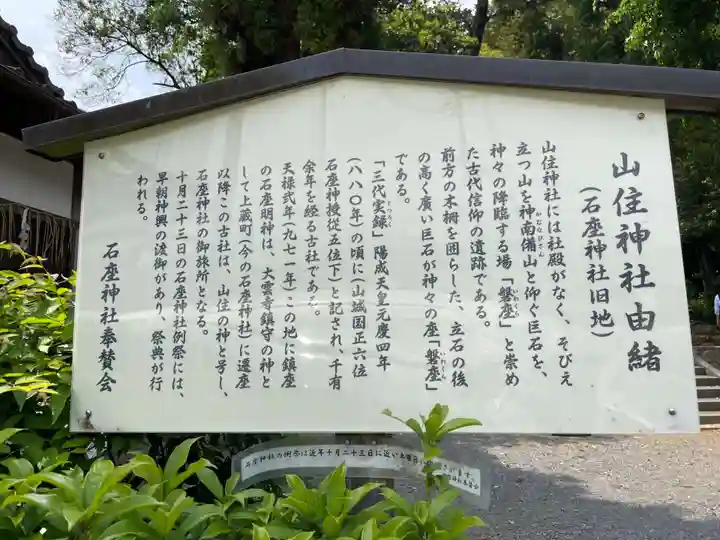 山住神社由緒
(石座神社旧地)
山住神社には社殿がなく、そびえ
立つ山を神南備山と仰ぐ巨石を、
かむなびさん
神々の降臨する場「磐座」と崇め
いわくら
た古代信仰の遺跡である。
前方の木柵を囲らした、立石の後
の高く廣い巨石が神々の座「磐座」
いわくら
である。
「三代実録」陽成天皇元慶四年
じつろく
(八八〇年)の頃に(山城国正六位
石座神授從五位下)と記され、千有
余年を経る古社である。
天禄弐年(九七一年)この地に鎮座
の石座明神は、大雲寺鎮守の神と
して上蔵町(今の石座神社)に遷座
以降この古社は、山住の神と号し、
石座神社の御旅所となる。
十月二十三日の石座神社例祭には、
早朝神輿の渡御があり、祭典が行
われる。
石座神社奉賛会
石座神社の例祭は近年十月二十三日に近い土曜日